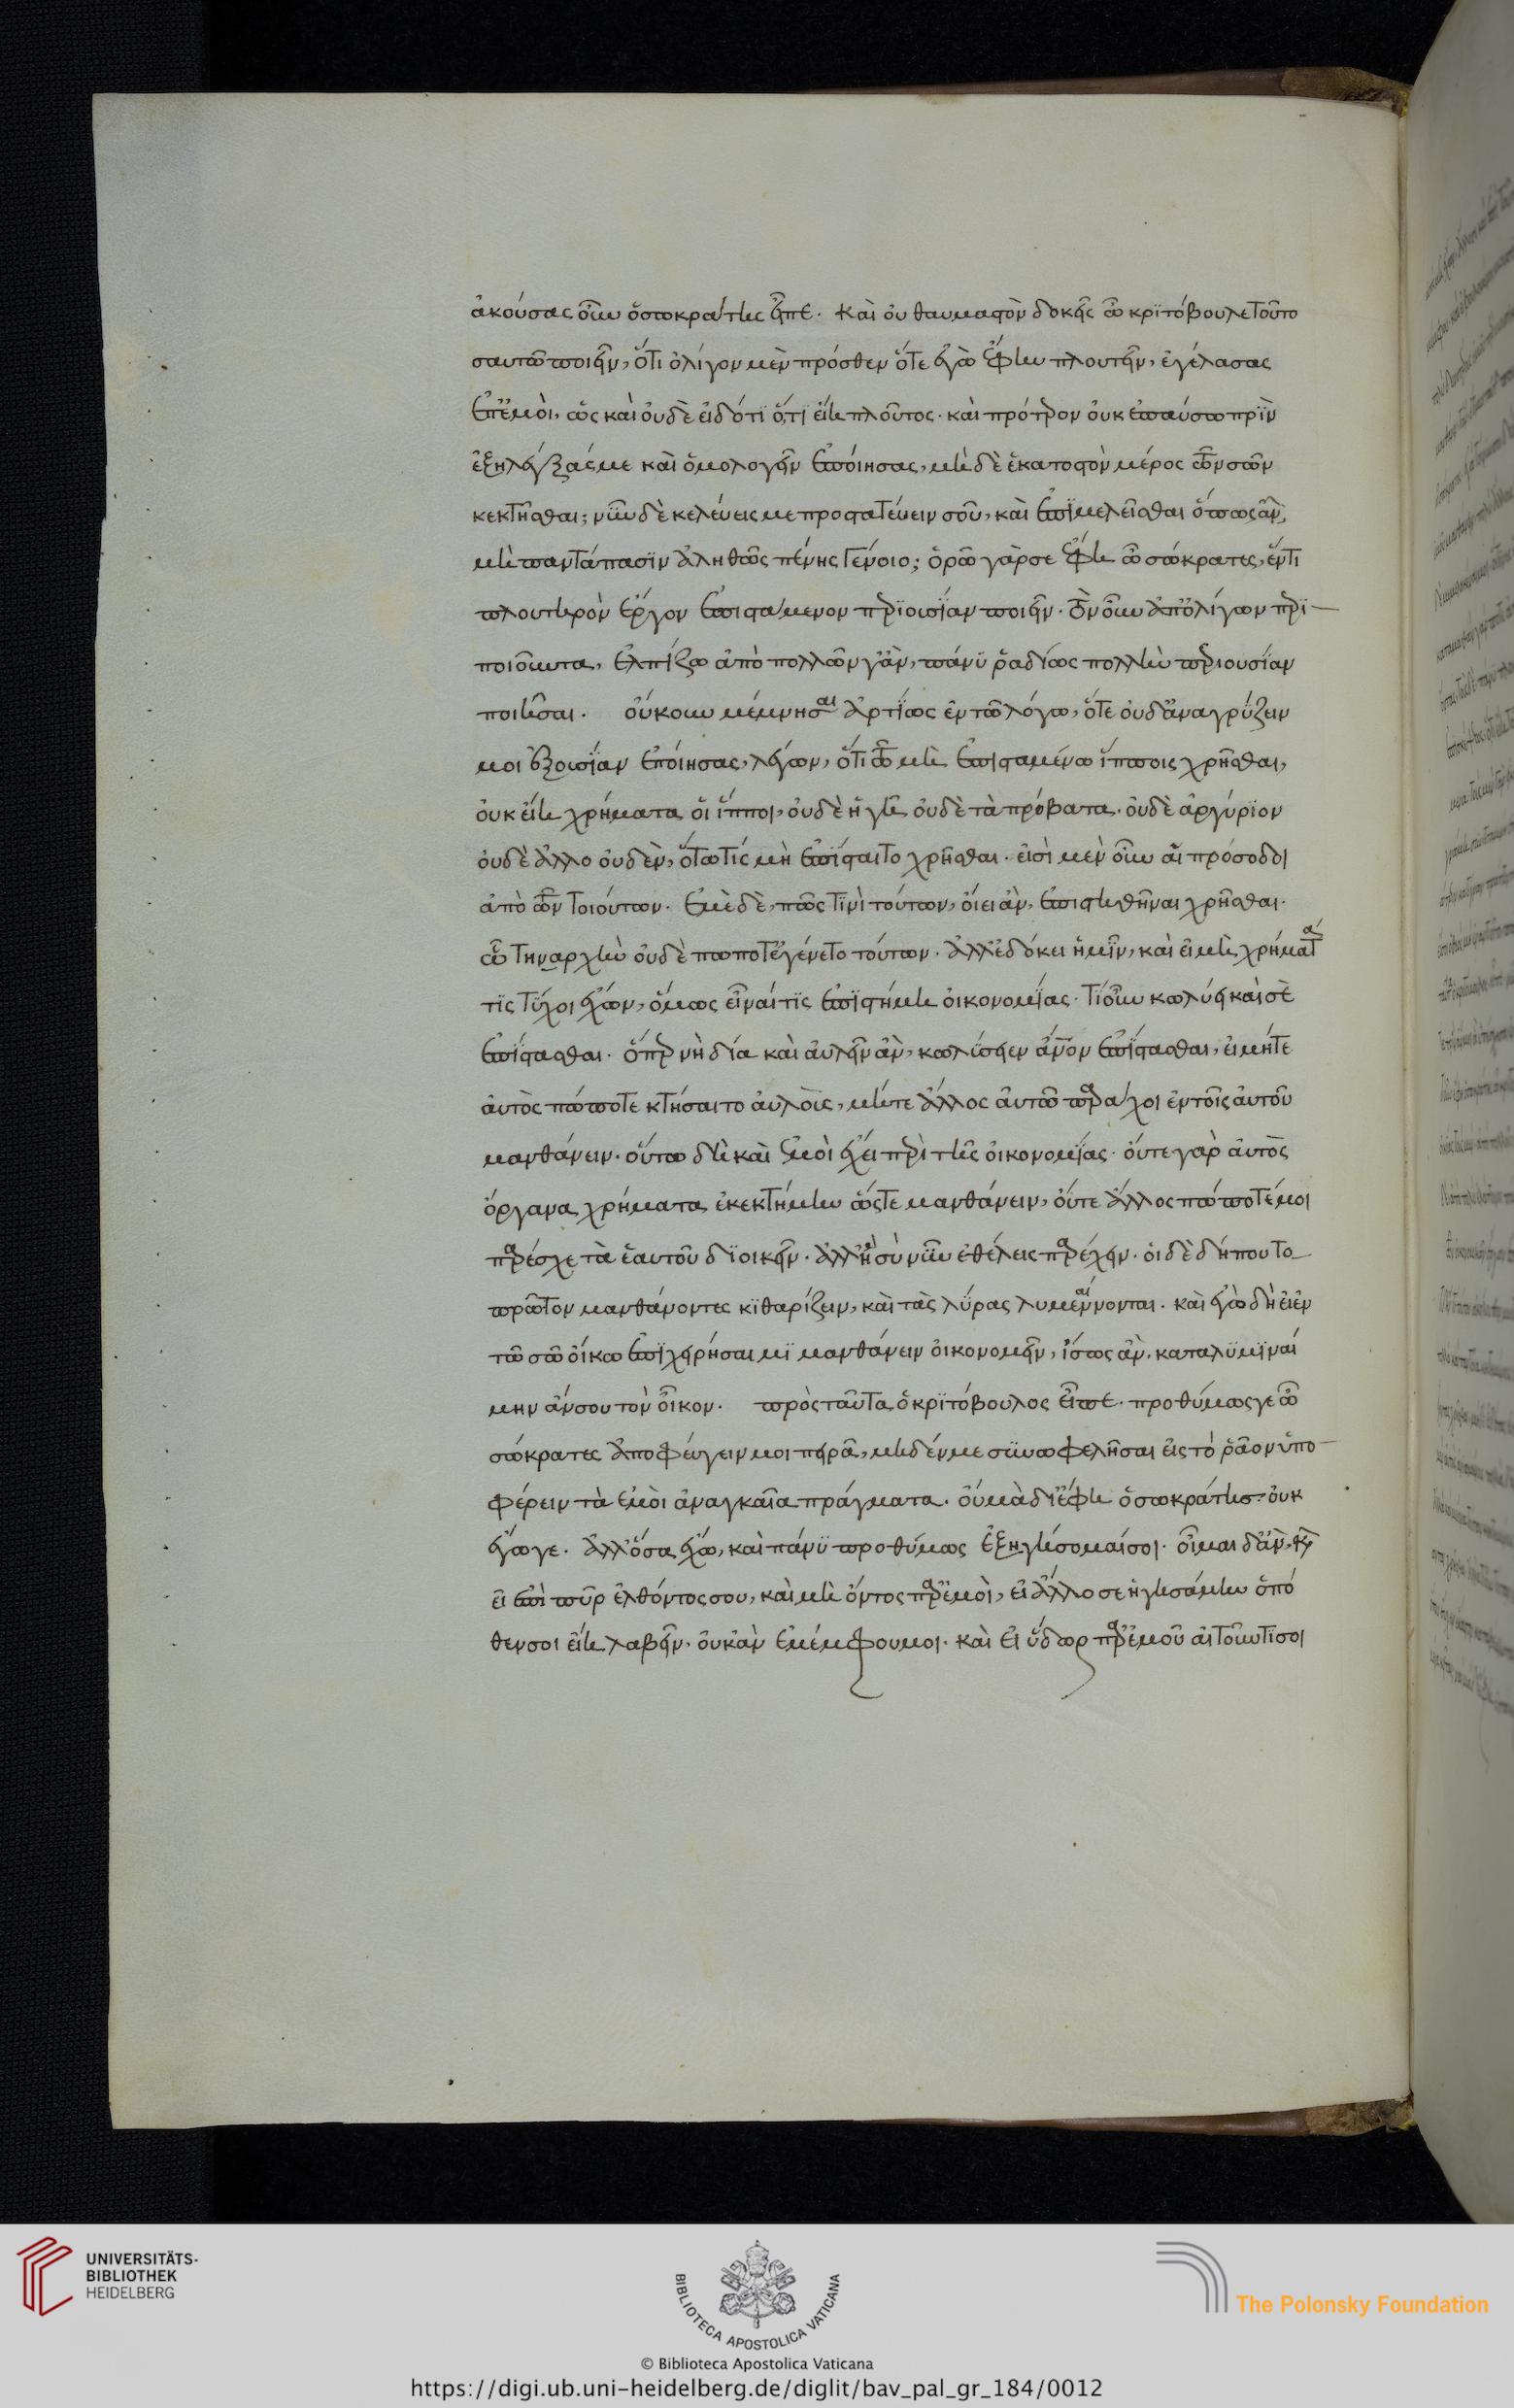 ἀκούσας οὖν ὁ σωκράτης εἶπε. καὶ οὐ θαυμαστὸν δοκεῖς ὦ κριτόβουλε τοῦτο
σαυτῶ ποιεῖν, ὅτι ὀλίγον μὲν πρόσθεν ὅτε ἐγὼ ἔφην πλουτεῖν, ἐγέλασας
ἐπ' ἐμοὶ, ὡς καὶ οὐδὲ εἰδότι ὅ,τι εἴη πλοῦτος. καὶ πρότερον οὐκ ἐπαύσω πρὶν
ἐξηλέγξάς με καὶ ὁμολογεῖν ἐποίησας, μὴ δὲ ἑκατοστὸν μέρος τῶν σῶν
κεκτῆσθαι; νῦν δὲ κελεύεις με προστατεύειν σοῦ, καὶ ἐπιμελεῖσθαι ὅπως ἂν,
μὴ παντάπασιν ἀληθῶς πένης γένοιο; ὁρῶ γάρ σε ἔφη ὦ σώκρατες, ἕν τι
πλουτηρὸν ἔργον ἐπιστάμενον περιουσίαν ποιεῖν. ὃν οὖν ἀπ' ὀλίγων περι
ποιοῦντα, ἐλπίζω ἀπὸ πολλῶν γ' ἂν, πάνυ ῥαδίως πολλὴν περιουσίαν
ποιῆσαι. οὔκουν μέμνησαι ἀρτίως ἐν τῶ λόγω, ὅτε οὐδ' ἀναγρύζειν
μοι ἐξουσίαν ἐποίησας, λέγων, ὅτι τῶ μὴ ἐπισταμένω ἵπποις χρῆσθαι,
οὐκ εἴη χρήματα οἱ ἵπποι, οὐδὲ ἡ γῆ οὐδὲ τὰ πρόβατα. οὐδὲ ἀργύριον
οὐδὲ ἄλλο οὐδὲν, ὅτω τίς μὴ ἐπίσταιτο χρῆσθαι. εἰσὶ μὲν οὖν αἱ πρόσοδοι
ἀπὸ τῶν τοιούτων. ἐμὲ δὲ, πῶς τινὶ τούτων, οἴει ἂν, ἐπιστηθῆναι χρῆσθαι.
ὧ τὴν ἀρχὴν οὐδὲ πώποτ' ἐγένετο τούτων. ἀλλ' ἐδόκει ἡμῖν, καὶ εἰ μὴ χρήματά
τις τύχοι ἔχων, ὅμως εἶναί τις ἐπιστήμη οἰκονομίας. τί οὖν κωλύει καὶ σὲ
ἐπίστασθαι. ὅπερ νὴ δία καὶ αὐλεῖν ἂν, κωλύσειεν ἄνον ἐπίστασθαι, εἰ μήτε
αὐτὸς πώποτε κτήσαιτο αὐλοὺς, μήτε ἄλλος αὐτῶ παράχοι ἐν τοῖς αὐτοῦ
μανθάνειν. οὕτω δὴ καὶ ἐμοὶ ἔχει περὶ τῆς οἰκονομίας. οὔτε γὰρ αὐτὸς
ὄργανα χρήματα ἐκεκτήμην ὥστε μανθάνειν, οὔτε ἄλλος πώποτέ μοι
παρέσχε τὰ ἑαυτοῦ διοικεῖν. ἀλλ' ἢ σὺ νῦν ἐθέλεις παρέχειν. οἱ δὲ δήπου το
πρῶτον μανθάνοντες κιθαρίζειν, καὶ τὰς λύρας λυμαίνονται. καὶ ἐγὼ δὴ εἰ ἐν
τῶ σῶ οἴκω ἐπιχειρήσαιμι μανθάνειν οἰκονομεῖν, ἴσως ἂν, καταλυμιναί
μην ἄν σου τὸν οἶκον. πρὸς ταῦτα ὁ κριτόβουλος εἶπε. προθύμως γε ὦ
σώκρατες ἀποφεύγειν μοι πειρᾶ, μηδέν με συνωφελῆσαι εἰς τὸ ῥᾶον ὑπο
φέρειν τὰ ἐμοὶ ἀναγκαῖα πράγματα. οὐ μὰ δί' ἔφη ὁ σωκράτης οὐκ
ἔγωγε. ἀλλ' ὅσα ἔχω, καὶ πάνυ προθύμως ἐξηγήσομαί σοι. οἶμαι δ' ἂν, καὶ
εἰ ἐπὶ πῦρ ἐλθόντος σου, καὶ μὴ ὄντος παρ' ἐμοὶ, εἰ ἄλλοσε ἡγησάμην ὁπό
θεν σοι εἴη λαβεῖν, οὐκ ἂν ἐμέμφου μοι. καὶ εἰ ὕδωρ παρ' ἐμοῦ αἰτοῦντί σοι
UNIVERSITÄTS-
BIBLIOTHEK
HEIDELBERG
BIBLIOTECA APOSTOLICA VATICANA
The Polonsky Foundation
© Biblioteca Apostolica Vaticana
https://digi.ub.uni-heidelberg.de/diglit/bav_pal_gr_184/0012